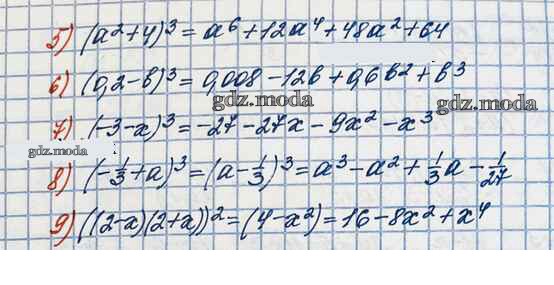 5) (a²+4)³ = a⁶+12a⁴+48a²+64
6) (0,2-в)³ = 0,008 - 12в + 0,6в² + в³
gdz.moda
gdz.moda
7.) (-3-x)³ = -27 - 27x - 9x² - x³
gdz.moda
8) (-1/3+a)³ = (a-1/3)³ = a³ - a² + 1/3a - 1/27
9) ((2-x)(2+x))² = (4-x²) = 16 - 8x² + x⁴